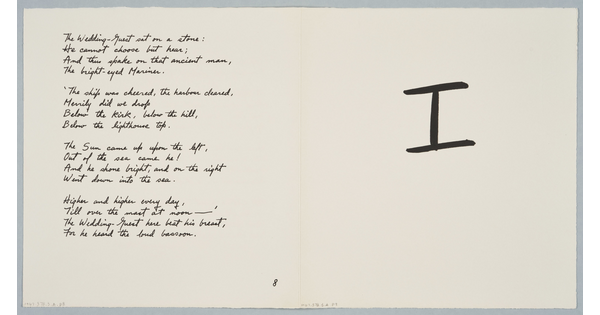 The Wedding-Guest sat on a stone:
He cannot choose but hear;
And thus spake on that ancient man,
The bright-eyed Mariner.
'The ship was cheered, the harbour cleared,
Merrily did we drop
Below the kirk, below the hill,
Below the lighthouse top.
The Sun came up upon the left,
Out of the sea came he!
And he shone bright, and on the right
Went down into the sea.
Higher and higher every day,
Till over the mast at noon —'
The Wedding-Guest here beat his breast,
For he heard the loud bassoon.
8
I